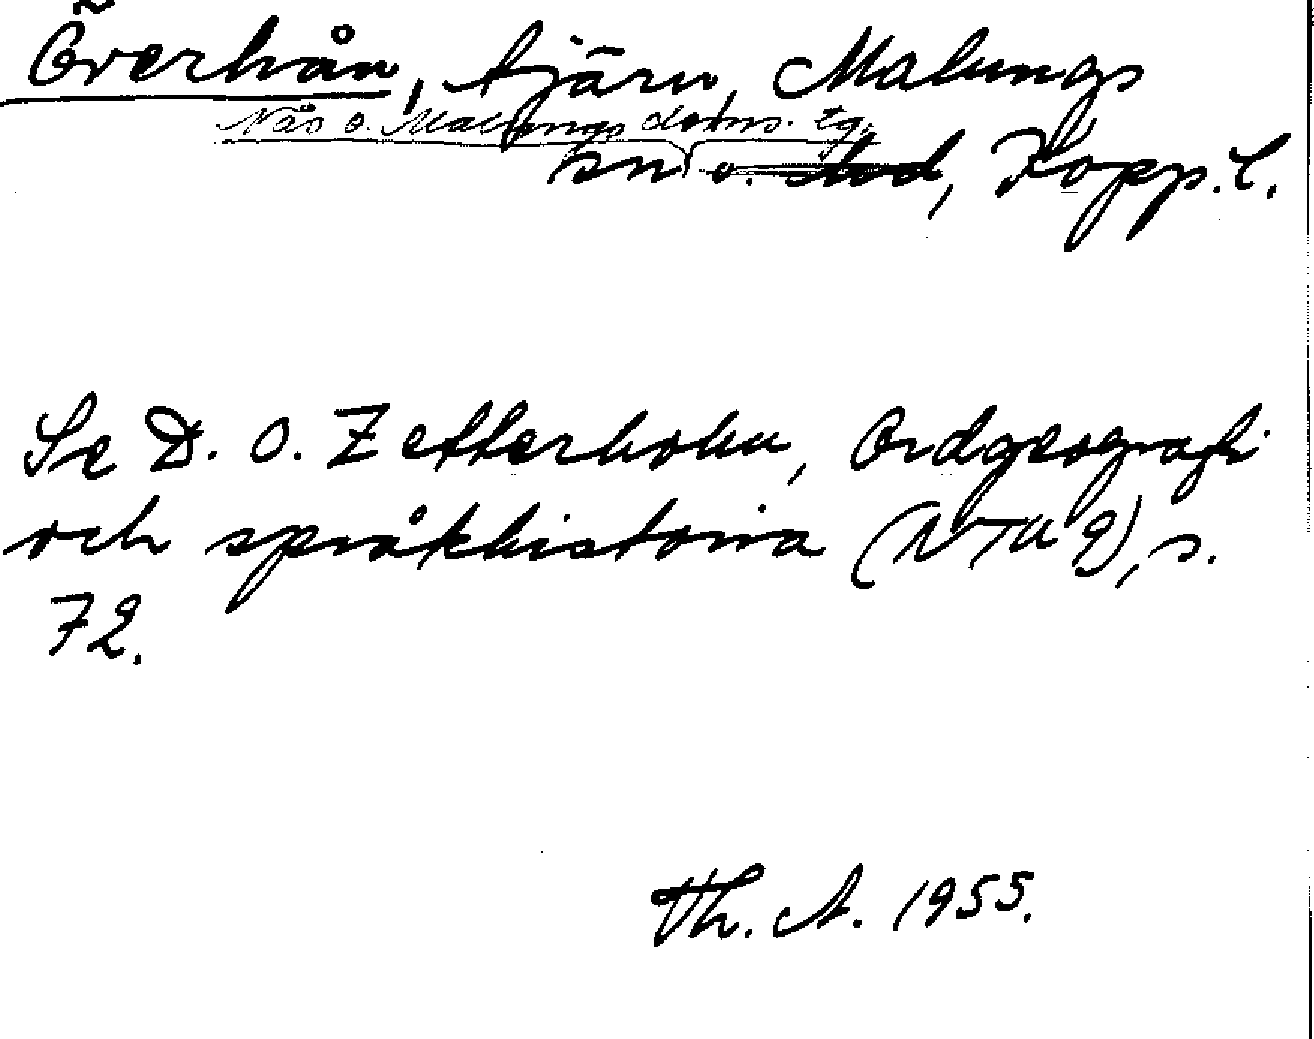 Överhån, tjärn, Malungs
Näs o. Malungs domns. tg,
sn o. stad, Kopp. l.
Se D. O. Zetterholm, Ordgeografi
och språkhistoria (NTU 2), s.
72.
Th. A. 1955.